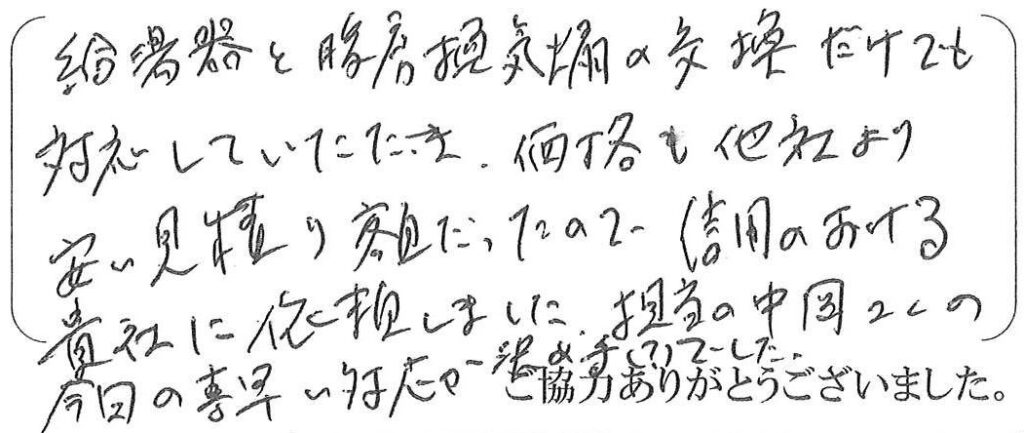 給湯器と暖房換気扇の交換だけでも
対応していただき、価格も他社より
安い見積り額だったので信用のおける
貴社に依頼しました。担当の中岡さんの
今回の素早い対応が決め手
でした。
ご協力ありがとうございました。